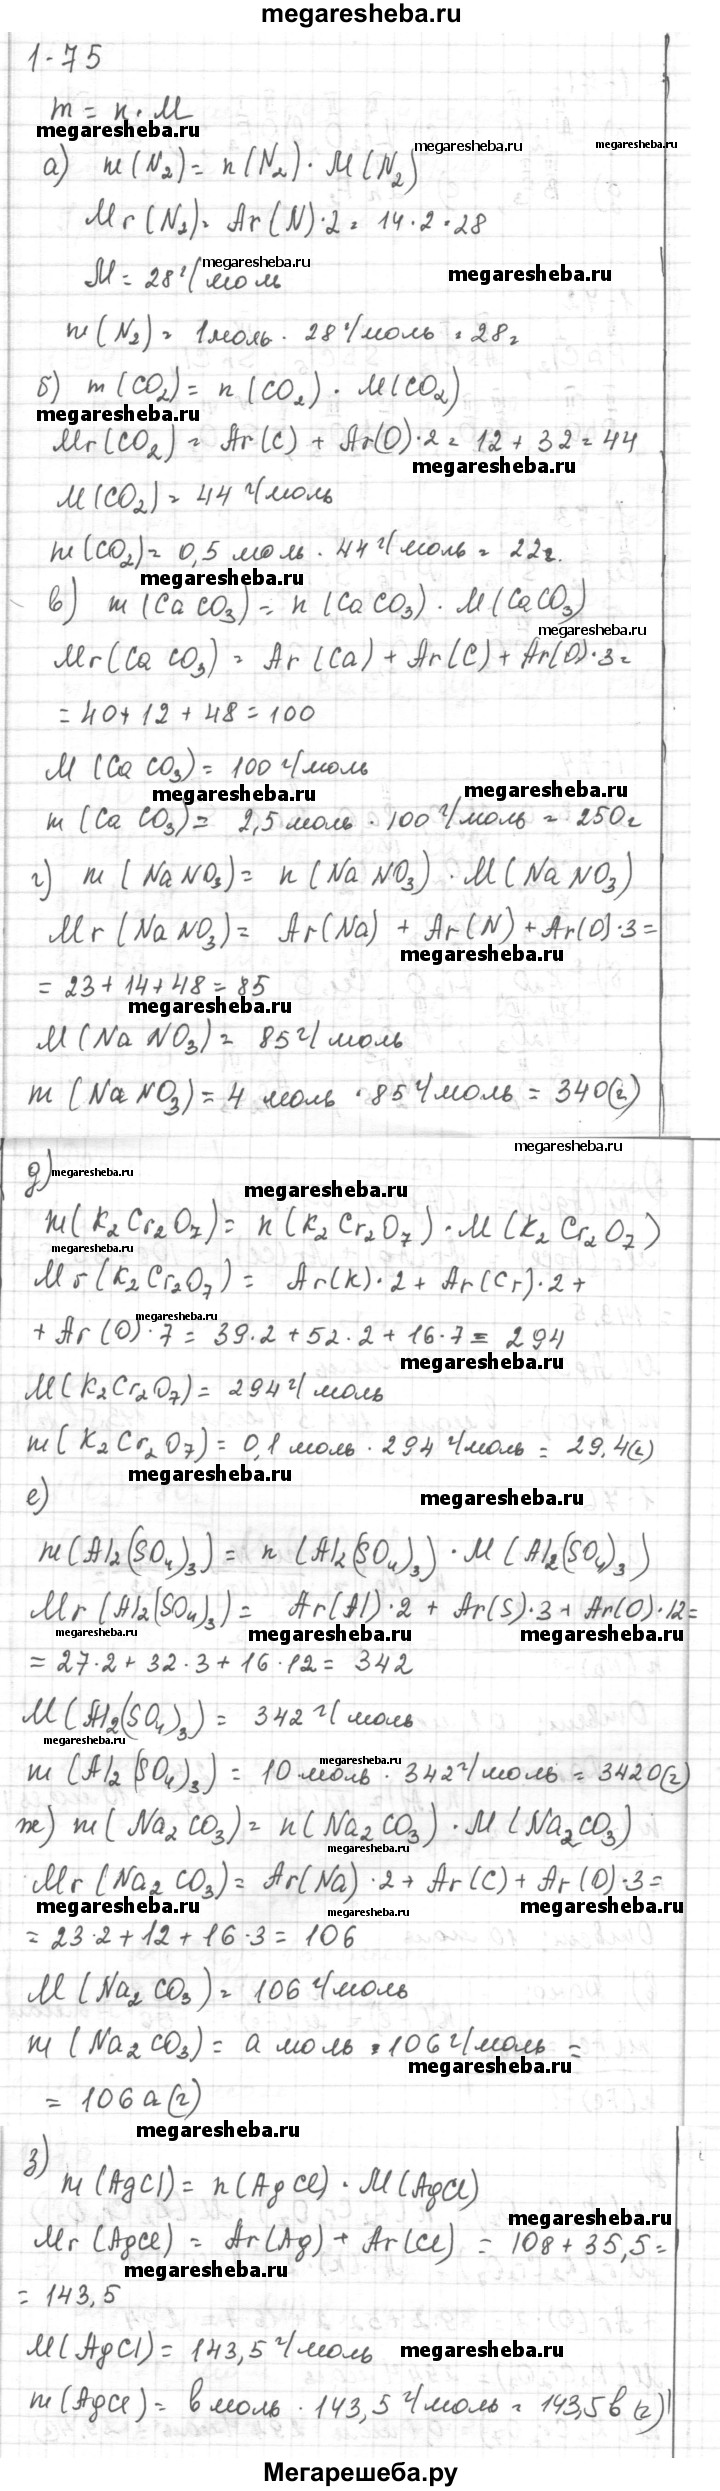 megaresheba.ru
1-75
m = n · M
megaresheba.ru megaresheba.ru megaresheba.ru
а) m(N₂) = n(N₂) · M(N₂)
Mr(N₂) = Ar(N)·2 = 14·2 = 28
megaresheba.ru
M = 28 г/моль megaresheba.ru
m(N₂) = 1 моль · 28 г/моль = 28 г
б) m(CO₂) = n(CO₂) · M(CO₂)
megaresheba.ru
Mr(CO₂) = Ar(C) + Ar(O)·2 = 12 + 32 = 44
megaresheba.ru
M(CO₂) = 44 г/моль
m(CO₂) = 0,5 моль · 44 г/моль = 22г.
megaresheba.ru
в) m(CaCO₃) = n(CaCO₃) · M(CaCO₃)
megaresheba.ru
Mr(CaCO₃) = Ar(Ca) + Ar(C) + Ar(O)·3 =
= 40 + 12 + 48 = 100
M(CaCO₃) = 100 г/моль
megaresheba.ru megaresheba.ru
m(CaCO₃) = 2,5 моль · 100 г/моль = 250 г
г) m(NaNO₃) = n(NaNO₃) · M(NaNO₃)
Mr(NaNO₃) = Ar(Na) + Ar(N) + Ar(O)·3 =
megaresheba.ru
= 23 + 14 + 48 = 85
megaresheba.ru
M(NaNO₃) = 85 г/моль
m(NaNO₃) = 4 моль · 85 г/моль = 340(г)
megaresheba.ru
д) megaresheba.ru
megaresheba.ru
m(K₂Cr₂O₇) = n(K₂Cr₂O₇) · M(K₂Cr₂O₇)
megaresheba.ru
Mr(K₂Cr₂O₇) = Ar(K)·2 + Ar(Cr)·2 +
megaresheba.ru
+ Ar(O)·7 = 39·2 + 52·2 + 16·7 = 294
megaresheba.ru
M(K₂Cr₂O₇) = 294 г/моль
m(K₂Cr₂O₇) = 0,1 моль · 294 г/моль = 29,4(г)
megaresheba.ru
е) megaresheba.ru
m(Al₂(SO₄)₃) = n(Al₂(SO₄)₃) · M(Al₂(SO₄)₃)
Mr(Al₂(SO₄)₃) = Ar(Al)·2 + Ar(S)·3 + Ar(O)·12 =
megaresheba.ru megaresheba.ru megaresheba.ru
= 27·2 + 32·3 + 16·12 = 342
M(Al₂(SO₄)₃) = 342 г/моль
megaresheba.ru
megaresheba.ru
m(Al₂(SO₄)₃) = 10 моль · 342 г/моль = 3420(г)
ж) m(Na₂CO₃) = n(Na₂CO₃) · M(Na₂CO₃)
megaresheba.ru
Mr(Na₂CO₃) = Ar(Na)·2 + Ar(C) + Ar(O)·3 =
megaresheba.ru megaresheba.ru megaresheba.ru
= 23·2 + 12 + 16·3 = 106
M(Na₂CO₃) = 106 г/моль
m(Na₂CO₃) = a моль · 106 г/моль =
megaresheba.ru
= 106a(г)
megaresheba.ru
з)
m(AgCl) = n(AgCl) · M(AgCl)
megaresheba.ru
Mr(AgCl) = Ar(Ag) + Ar(Cl) = 108 + 35,5 =
megaresheba.ru
= 143,5
M(AgCl) = 143,5 г/моль megaresheba.ru
m(AgCl) = в моль · 143,5 г/моль = 143,5в (г)
Мегарешеба.ру